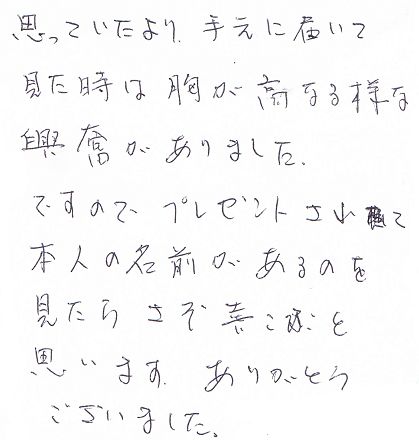 思っていたより、手元に届いて
見た時は胸が高なる様な
興奮がありました。
ですので プレゼントされて
本人の名前があるのを
見たら さぞ喜ぶと
思います。ありがとう
ございました。